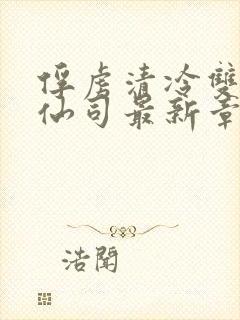 俘虏清冷雙
仙司最新章
浩闻